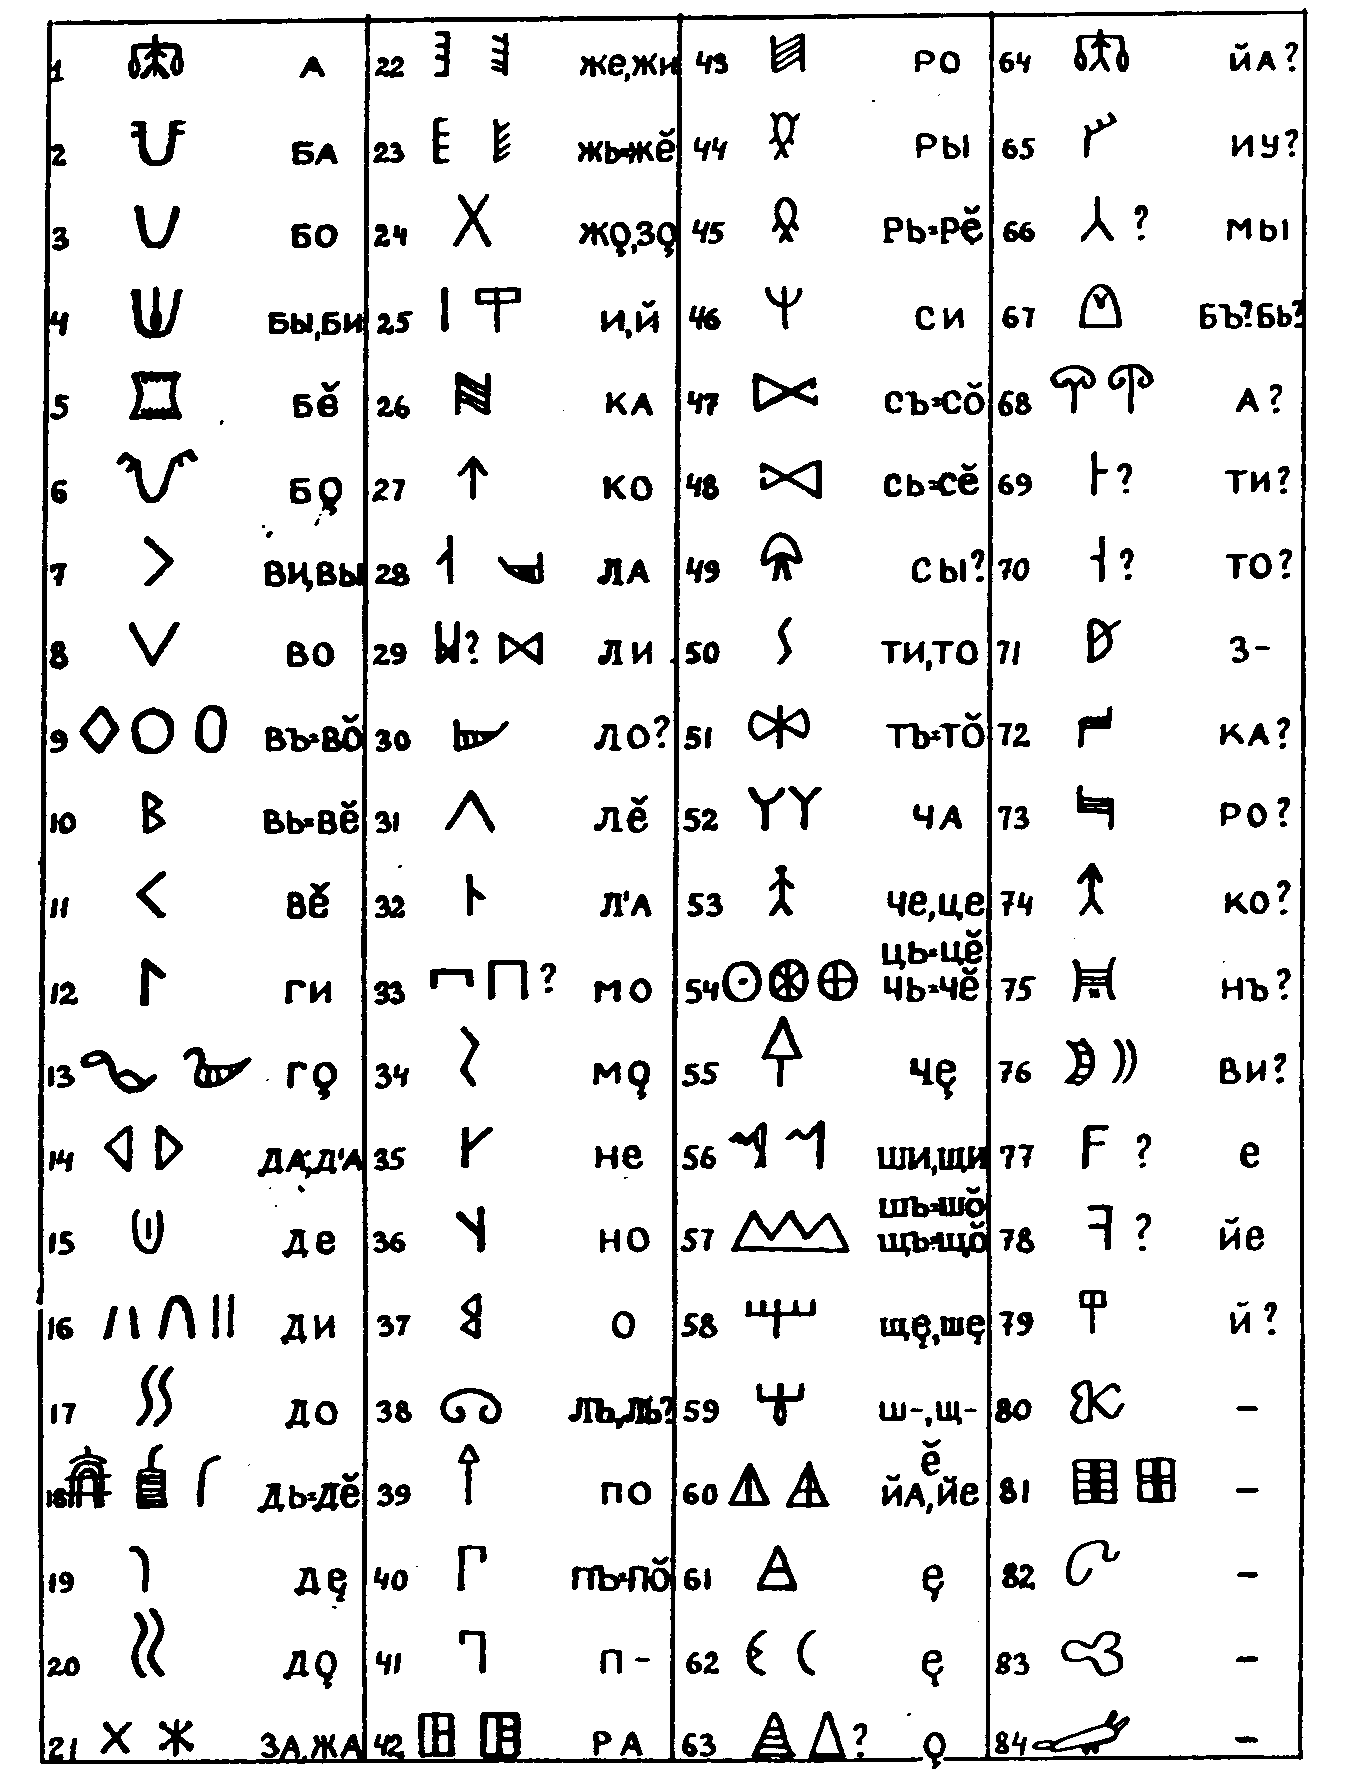 1 А
2 БА
3 БО
4 БЫ,БИ
5 БĔ
6 БǪ
7 ВИ,ВЫ
8 ВО
9 ВЪ=ВŎ
10 ВЬ=ВĔ
11 ВĔ
12 ГИ
13 ГǪ
14 ДА,Д'А
15 ДЕ
16 ДИ
17 ДО
18 ДЬ=ДĔ
19 ДĘ
20 ДǪ
21 ЗА,ЖА
22 ЖЕ,ЖИ
23 ЖЬ=ЖĔ
24 ЖǪ,ЗǪ
25 И,Й
26 КА
27 КО
28 ЛА
29 ? ЛИ
30 ЛО?
31 ЛĔ
32 Л'А
33 ? МО
34 МǪ
35 НЕ
36 НО
37 О
38 ЛЪ,ЛЬ?
39 ПО
40 ПЪ=ПŎ
41 П-
42 РА
43 РО
44 РЫ
45 РЬ=РĔ
46 СИ
47 СЪ=СŎ
48 СЬ=СĔ
49 СЫ?
50 ТИ,ТО
51 ТЪ=ТŎ
52 ЧА
53 ЧЕ,ЦЕ
ЦЬ=ЦĔ
54 ЧЬ=ЧĔ
55 ЧĘ
56 ШИ,ЩИ
ШЪ=ШŎ
57 ЩЪ=ЩŎ
58 ЩĘ,ШĘ
59 Ш-,Щ-
Ĕ
60 ЙА,ЙЕ
61 Ę
62 Ę
63 ? Ǫ
64 ЙА?
65 ИУ?
66 ? МЫ
67 БЪ?БЬ?
68 А?
69 ? ТИ?
70 ? ТО?
71 З-
72 КА?
73 РО?
74 КО?
75 НЪ?
76 ВИ?
77 ? Е
78 ? ЙЕ
79 Й?
80 -
81 -
82 -
83 -
84 -